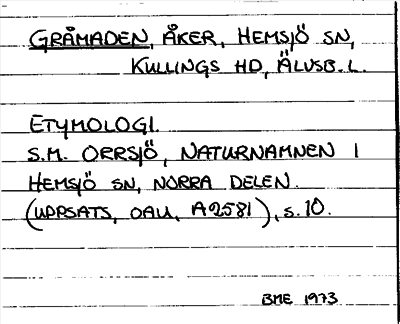 GRÅMADEN, ÅKER, HEMSJÖ SN,
KULLINGS HD, ÄLVSB. L.
ETYMOLOGI.
S.M. ORRSJÖ, NATURNAMNEN I
HEMSJÖ SN, NORRA DELEN.
(UPPSATS, OAU, A2581), S. 10.
BME 1973